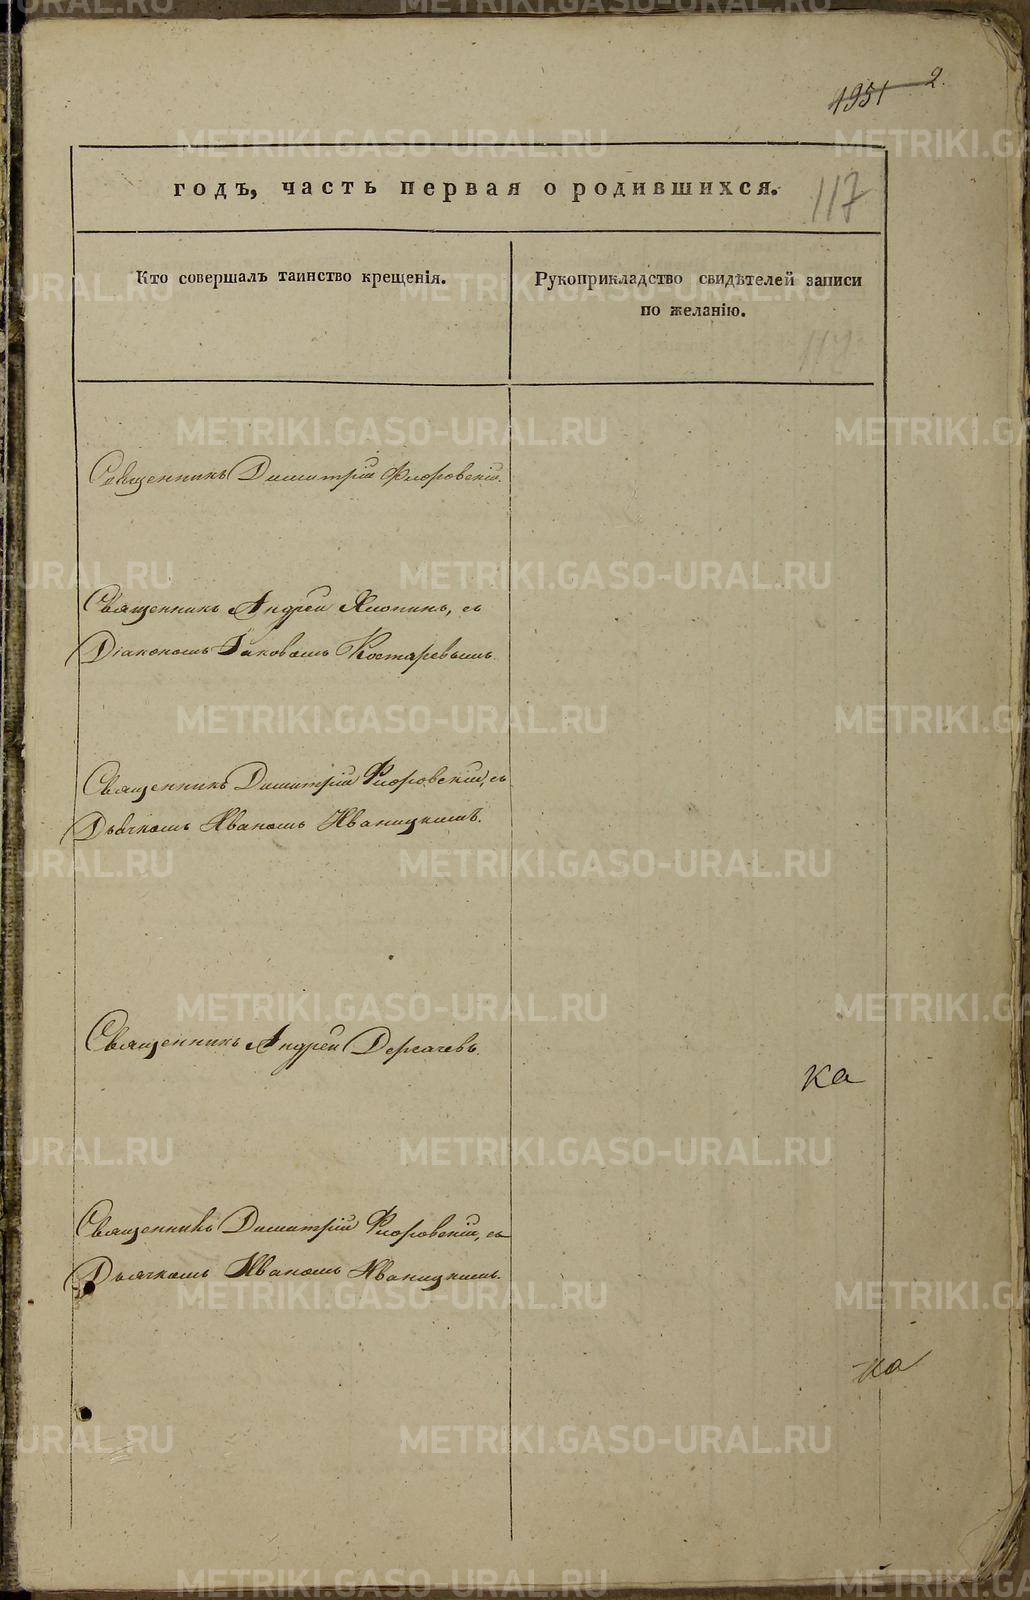 4951 2.
годъ, часть первая о родившихся.
117
Кто совершалъ таинство крещенія.
Рукоприкладство свидѣтелей записи
по желанію.
Священникъ Димитрій Флоровскій.
Священникъ Андрей Хлопинъ, съ
Діакономъ Іаковомъ Костаревымъ.
Священникъ Димитрій Флоровскій, съ
Дьячкомъ Иваномъ Иваницкимъ.
Священникъ Андрей Дергачевъ.
ка
Священникъ Димитрій Флоровскій, съ
Дьячкомъ Иваномъ Иваницкимъ.
ка
METRIKI.GASO-URAL.RU